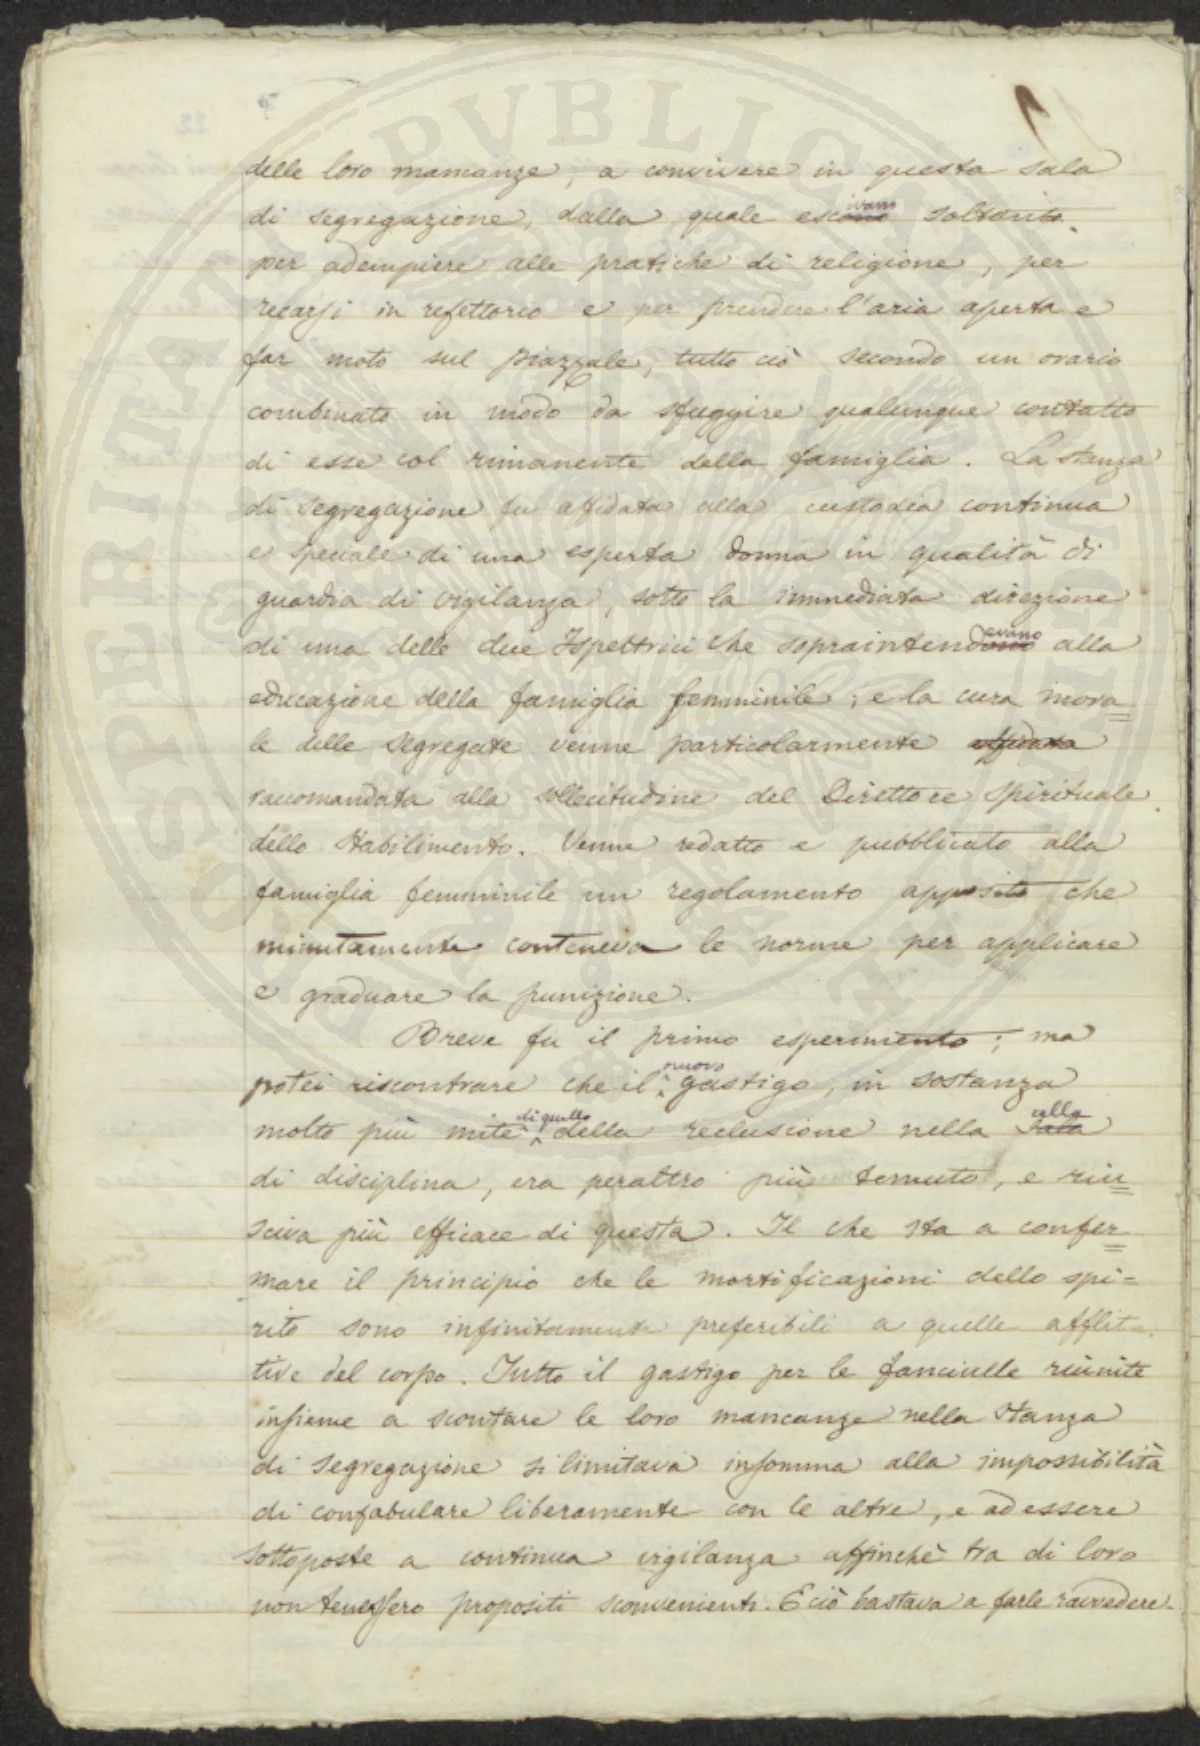 delle loro mancanze, a convivere in questa sala
di segregazione, dalla quale escivano soltanto
per adempiere alle pratiche di religione, per
recarsi in refettorio e per prendere l'aria aperta e
far moto sul piazzale, tutto ciò secondo un orario
combinato in modo da sfuggire qualunque contatto
di esse col rimanente della famiglia. La stanza
di segregazione fu affidata alla custodia continua
e speciale di una esperta donna in qualità di
guardia di vigilanza, sotto la immediata direzione
di una delle due Ispettrici che sopraintendevano alla
educazione della famiglia femminile; e la cura mora=
le delle segregate venne particolarmente affidata
raccomandata alla sollecitudine del Direttore spirituale
dello Stabilimento. Venne redatto e pubblicato alla
famiglia femminile un regolamento apposito che
minutamente conteneva le norme per applicare
e graduare la punizione.
Breve fu il primo esperimento; ma
potei riscontrare che il nuovo gastigo, in sostanza
molto più mite di quello della reclusione nella cella
di disciplina, era peraltro più temuto, e riu=
sciva più efficace di questa. Il che sta a confer=
mare il principio che le mortificazioni dello spi=
rito sono infinitamente preferibili a quelle afflit=
tive del corpo. Tutto il gastigo per le fanciulle riunite
insieme a scontare le loro mancanze nella stanza
di segregazione si limitava insomma alla impossibilità
di confabulare liberamente con le altre, e ad essere
sottoposte a continua vigilanza affinchè tra di loro
non tenessero propositi sconvenienti. E ciò bastava a farle ravvedere.
PVBLICAE
PROSPERITATI